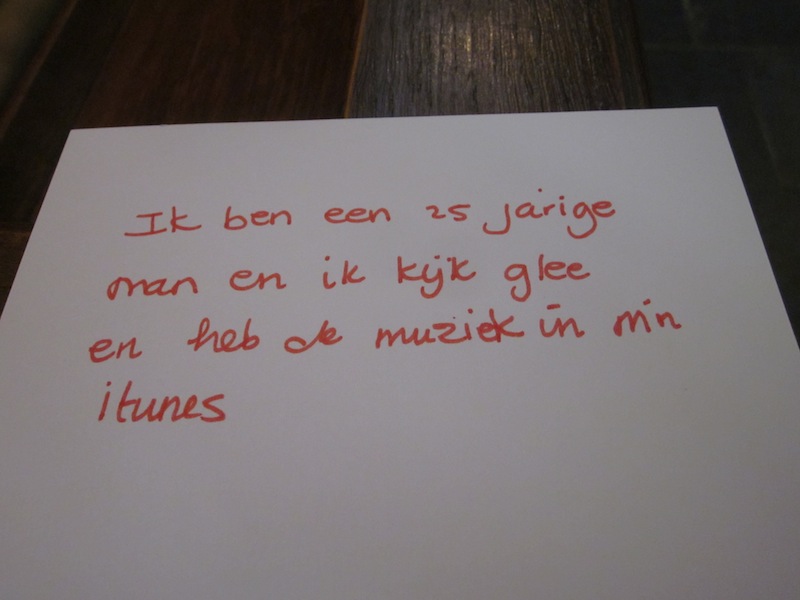 Ik ben een 25 jarige
man en ik kijk glee
en heb de muziek in m'n
itunes